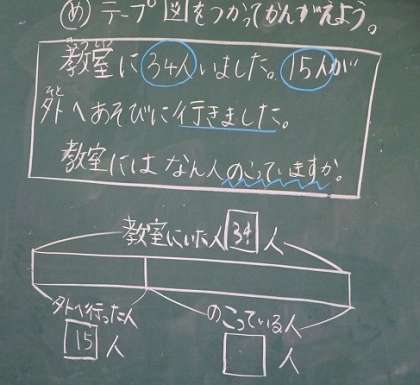 め テープ図をつかってかんがえよう。
教室に34人いました。15人が
外へあそびに行きました。
教室にはなん人のこっていますか。
教室にいた人 34 人
外へ行った人 のこっている人
15 人 人